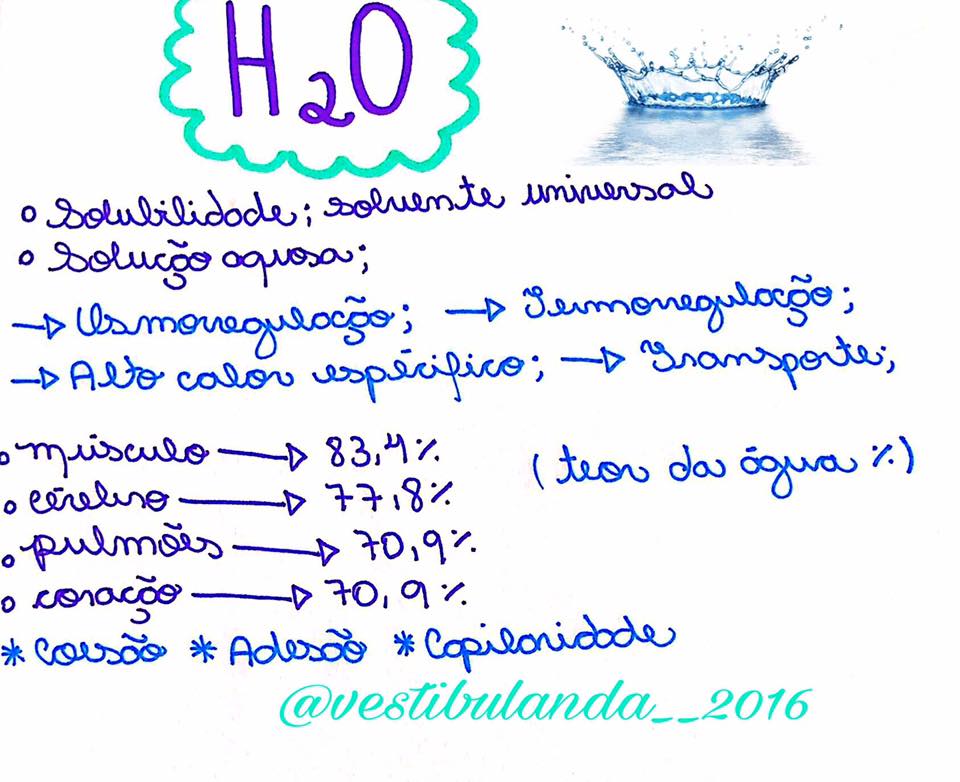 H2O
o Solubilidade; solvente universal
o Solução aquosa;
→ Osmorregulação; → Termorregulação;
→ Alto calor específico; → Transporte;
o músculo → 83,4% (teor da água %)
o cérebro → 77,8%
o pulmões → 70,9%
o coração → 70,9%
* Coesão * Adesão * Capilaridade
@vestibulanda__2016